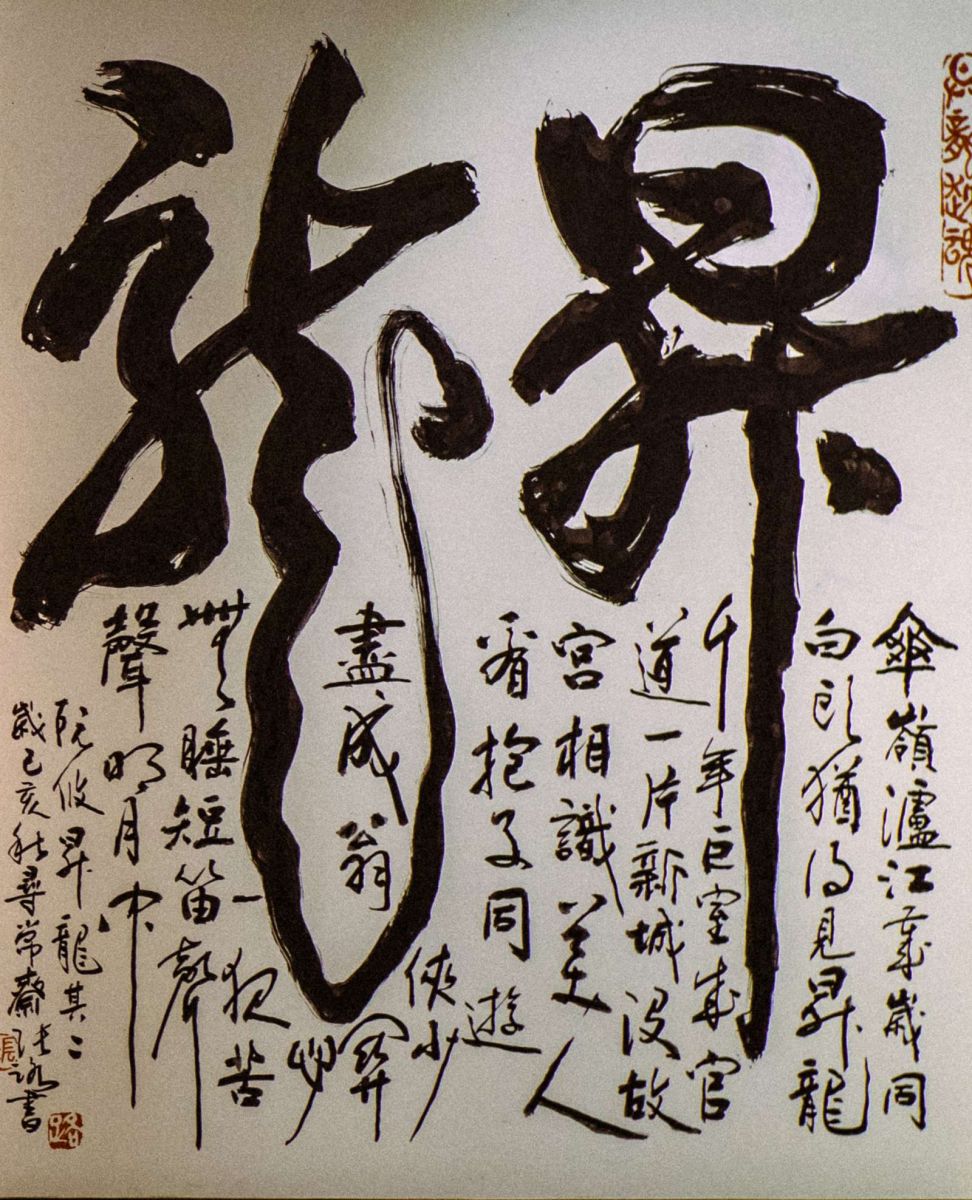 昇龍
傘嶺瀘江歲歲同
白頭猶得見昇龍
千年巨室成官
道一片新城沒故
宮相識美人
看抱子同遊
俠少
盡成翁
關心
一夜苦
無睡短笛聲
聲明月中
阮攸昇龍其二
歲己亥秋尋常齋書